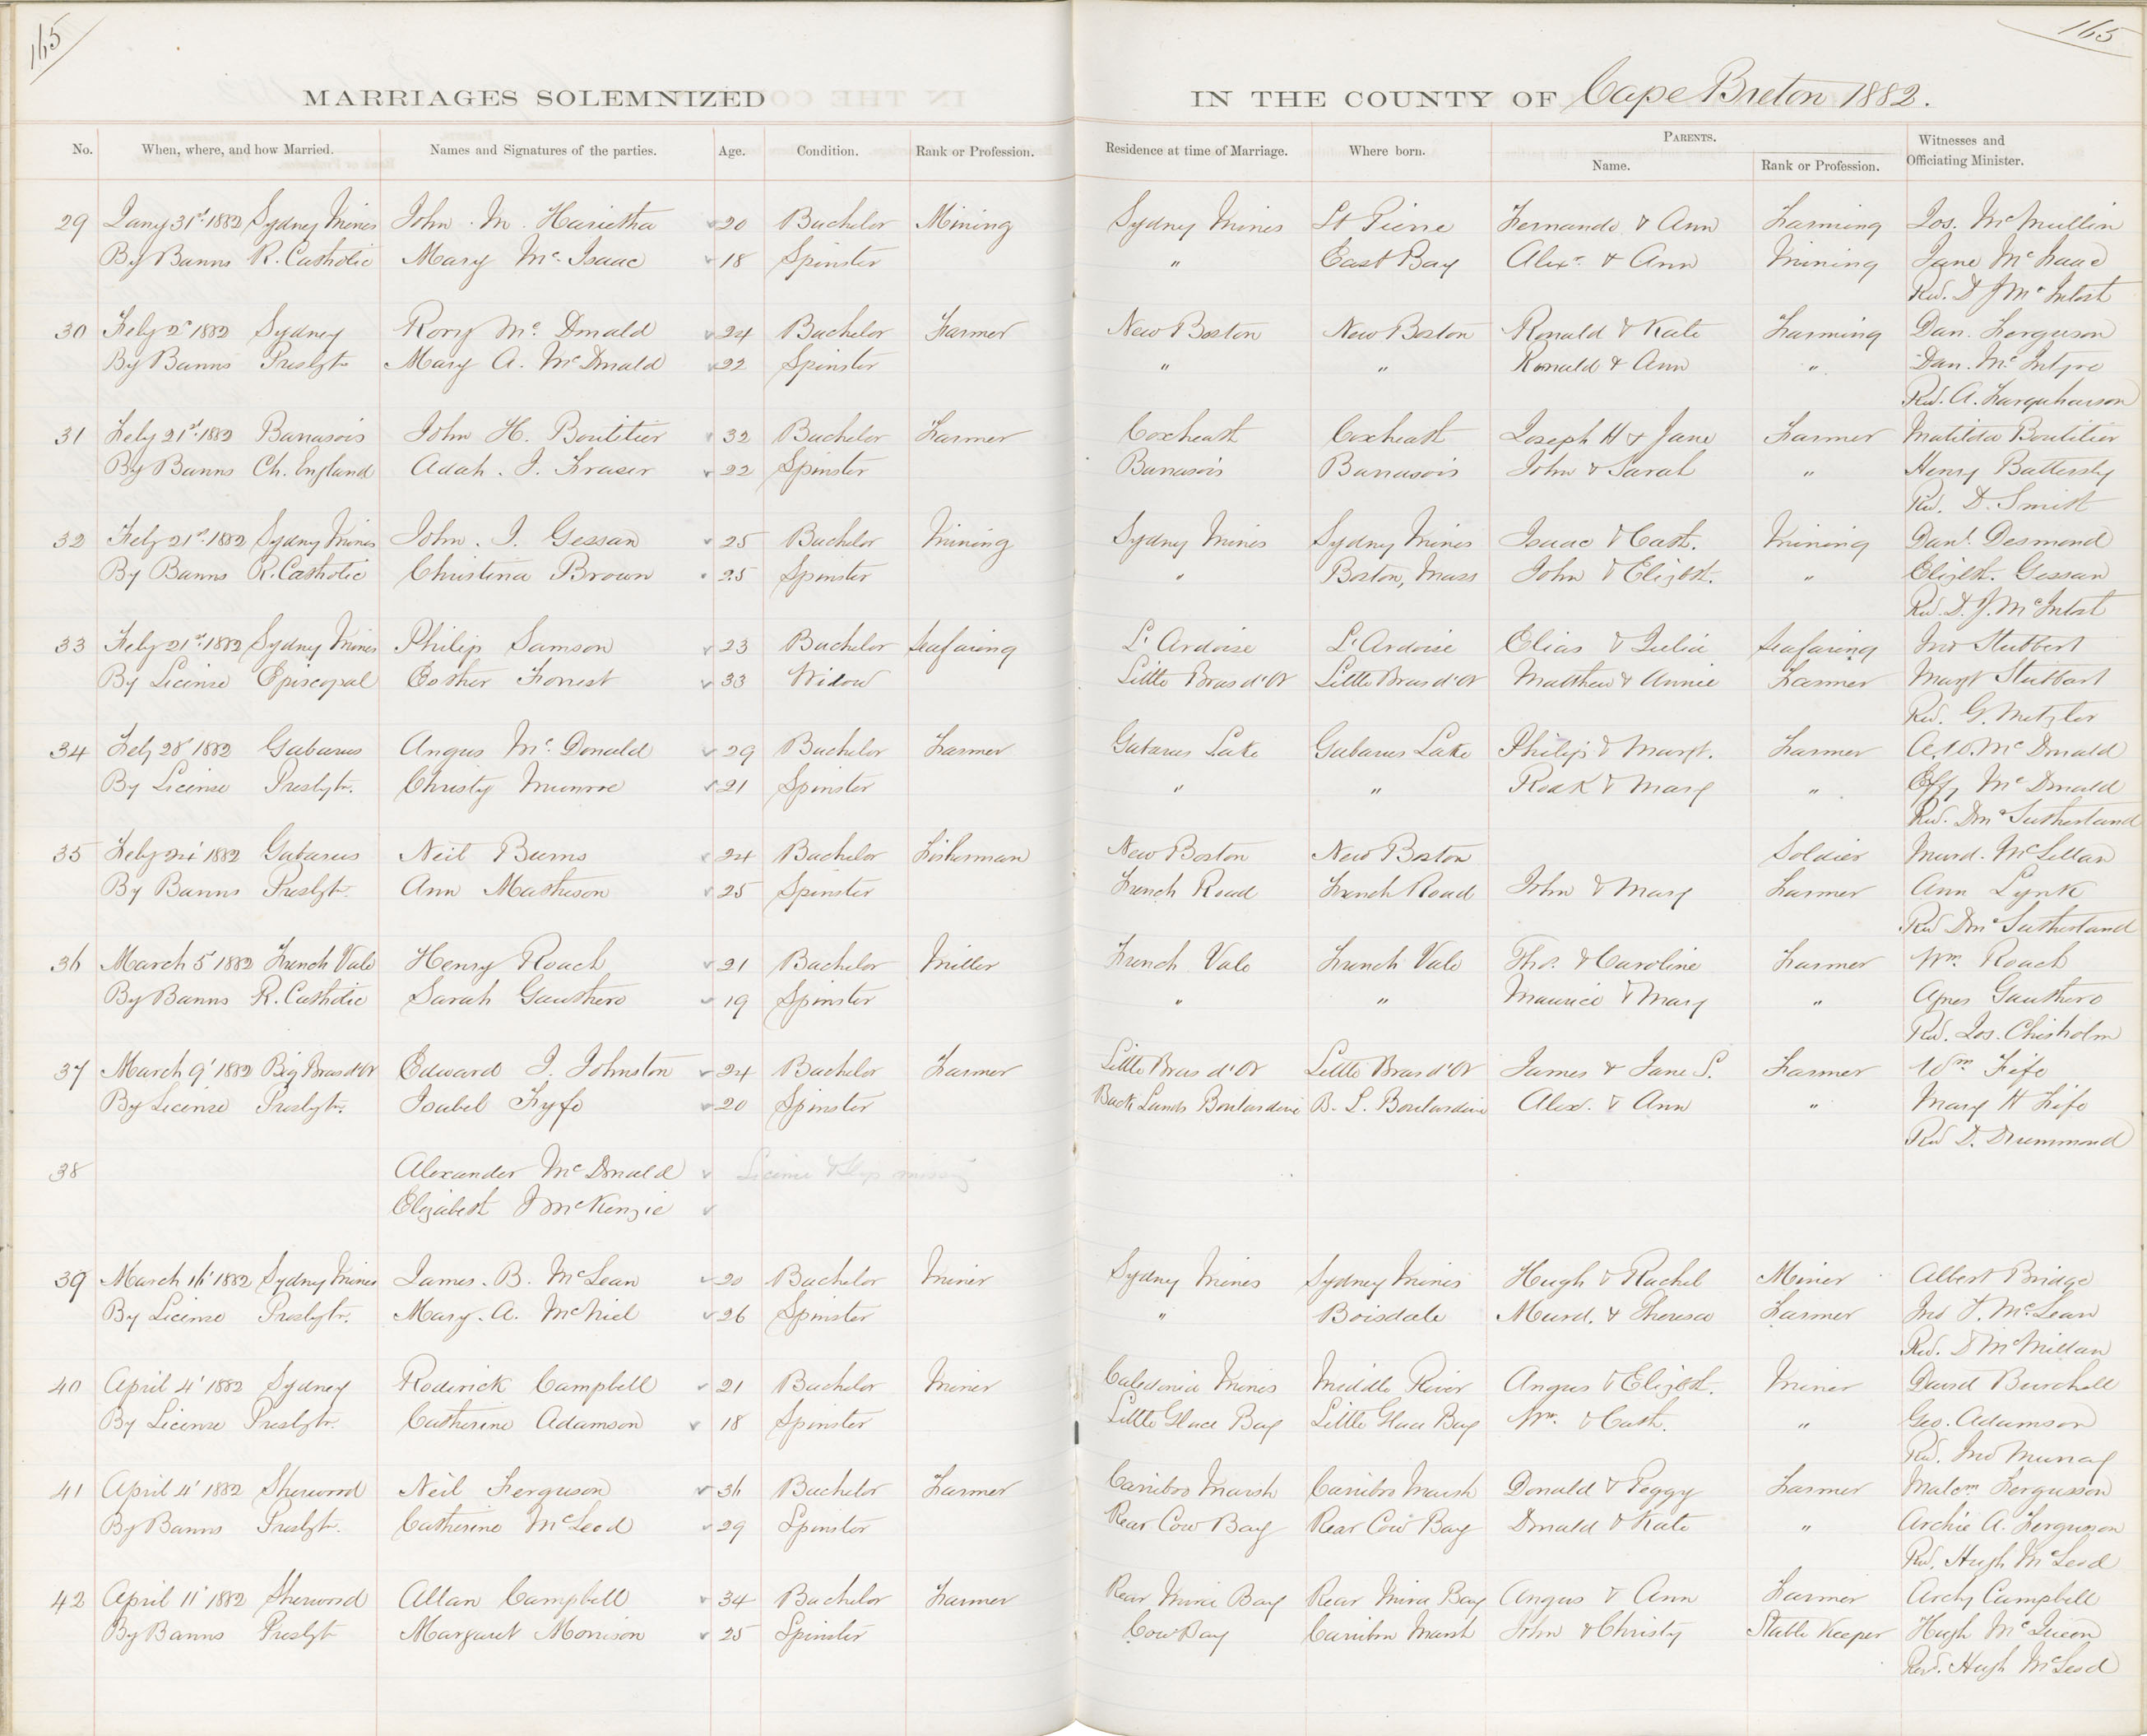 165
165
MARRIAGES SOLEMNIZED IN THE COUNTY OF Cape Breton 1882.
No. When, where, and how Married. Names and Signatures of the parties. Age. Condition. Rank or Profession. Residence at time of Marriage. Where born. PARENTS. Name. Rank or Profession. Witnesses and Officiating Minister.
29 Jany 31st 1882 Sydney Mines John M. 20 Bachelor Mining Sydney Mines St Pierre Fernando & Ann Farming Jos. McMullin
By Banns R. Catholic Mary Mc Isaac 18 Spinster " East Bay Alexr. & Ann Mining Jane McIsaac
Rev. D J McIntosh
30 Feby 2d 1882 Sydney Rory Mc Donald 24 Bachelor Farmer New Boston New Boston Ronald & Kate Farming Dan. Ferguson
By Banns Presbytn Mary A. McDonald 22 Spinster " " Ronald & Ann " Dan. McIntyre
Rev. A. Farquharson
31 Feby 21st 1882 Barrasois John H. Boutilier 32 Bachelor Farmer Coxheath Coxheath Joseph H & Jane Farmer Matilda Boutilier
By Banns Ch. England Adah. J. Fraser 22 Spinster Barrasois Barrasois John & Sarah " Henry Battersby
Rev. D. Smith
32 Feby 21st 1882 Sydney Mines John. J. Gessan 25 Bachelor Mining Sydney Mines Sydney Mines Isaac & Cath. Mining Danl. Desmond
By Banns R. Catholic Christina Brown 25 Spinster " Boston, Mass John & Elizbth. " Elizbth. Gessan
Rev. D. J. McIntosh
33 Feby 21st 1882 Sydney Mines Philip Samson 23 Bachelor Seafaring L'Ardoise L'Ardoise Elias & Julia Seafaring Jno Stubbert
By License Episcopal Esther Forrest 33 Widow Little Bras d'Or Little Bras d'Or Matthew & Annie Farmer Margt Stubbart
Rev. G. Metzler
34 Feby 28 1882 Gabarus Angus Mc Donald 29 Bachelor Farmer Gabarus Lake Gabarus Lake Philip & Margt. Farmer McDonald
By License Presbytn. Christy Munroe 21 Spinster " " & Mary " Effy McDonald
Rev. Dm Sutherland
35 Feby 24 1882 Gabarus Neil Burns 24 Bachelor Fisherman New Boston New Boston Soldier Murd. McLellan
By Banns Presbytn. Ann Matheson 25 Spinster French Road French Road John & Mary Farmer Ann Lynk
Rev Dm Sutherland
36 March 5 1882 French Vale Henry Roach 21 Bachelor Miller French Vale French Vale Thos. & Caroline Farmer Wm. Roach
By Banns R. Catholic Sarah Gauthero 19 Spinster " " Maurice & Mary " Agnes Gauthero
Rev. Jos. Chisholm
37 March 9' 1882 Big Bras d'Or Edward J. Johnston 24 Bachelor Farmer Little Bras d'Or Little Bras d'Or James & Jane S. Farmer Wm. Fife
By License Presbytn. Isabel Fyfe 20 Spinster Back Lands Boulardrie B. L. Boulardrie Alex. & Ann " Mary H Fife
Rev D. Drummond
38 Alexander McDonald License & Slip missing
Elizabeth J McKenzie
39 March 16' 1882 Sydney Mines James. B. McLean 20 Bachelor Miner Sydney Mines Sydney Mines Hugh & Rachel Miner Albert Bridge
By License Presbytn. Mary. A. McNiel 26 Spinster " Boisdale Murd. & Theresa Farmer Jno T. McLean
Rev. D McMillan
40 April 4' 1882 Sydney Roderick Campbell 21 Bachelor Miner Caledonia Mines Middle River Angus & Elizbth. Miner David Burchell
By License Presbytn. Catherine Adamson 18 Spinster Little Glace Bay Little Glace Bay Wm. & Cath. " Geo. Adamson
Rev. Jno Murray
41 April 4' 1882 Sherwood Neil Ferguson 36 Bachelor Farmer Cariboo Marsh Cariboo Marsh Donald & Peggy Farmer Malcm Fergusson
By Banns Presbytn. Catherine McLeod 29 Spinster Rear Cow Bay Rear Cow Bay Donald & Kate " Archie A. Ferguson
Rev. Hugh McLeod
42 April 11' 1882 Sherwood Allan Campbell 34 Bachelor Farmer Rear Mira Bay Rear Mira Bay Angus & Ann Farmer Archy Campbell
By Banns Presbytn Margaret Morrison 25 Spinster Cow Bay Cariboo Marsh John & Christy Stable Keeper Hugh McQueen
Rev. Hugh McLeod